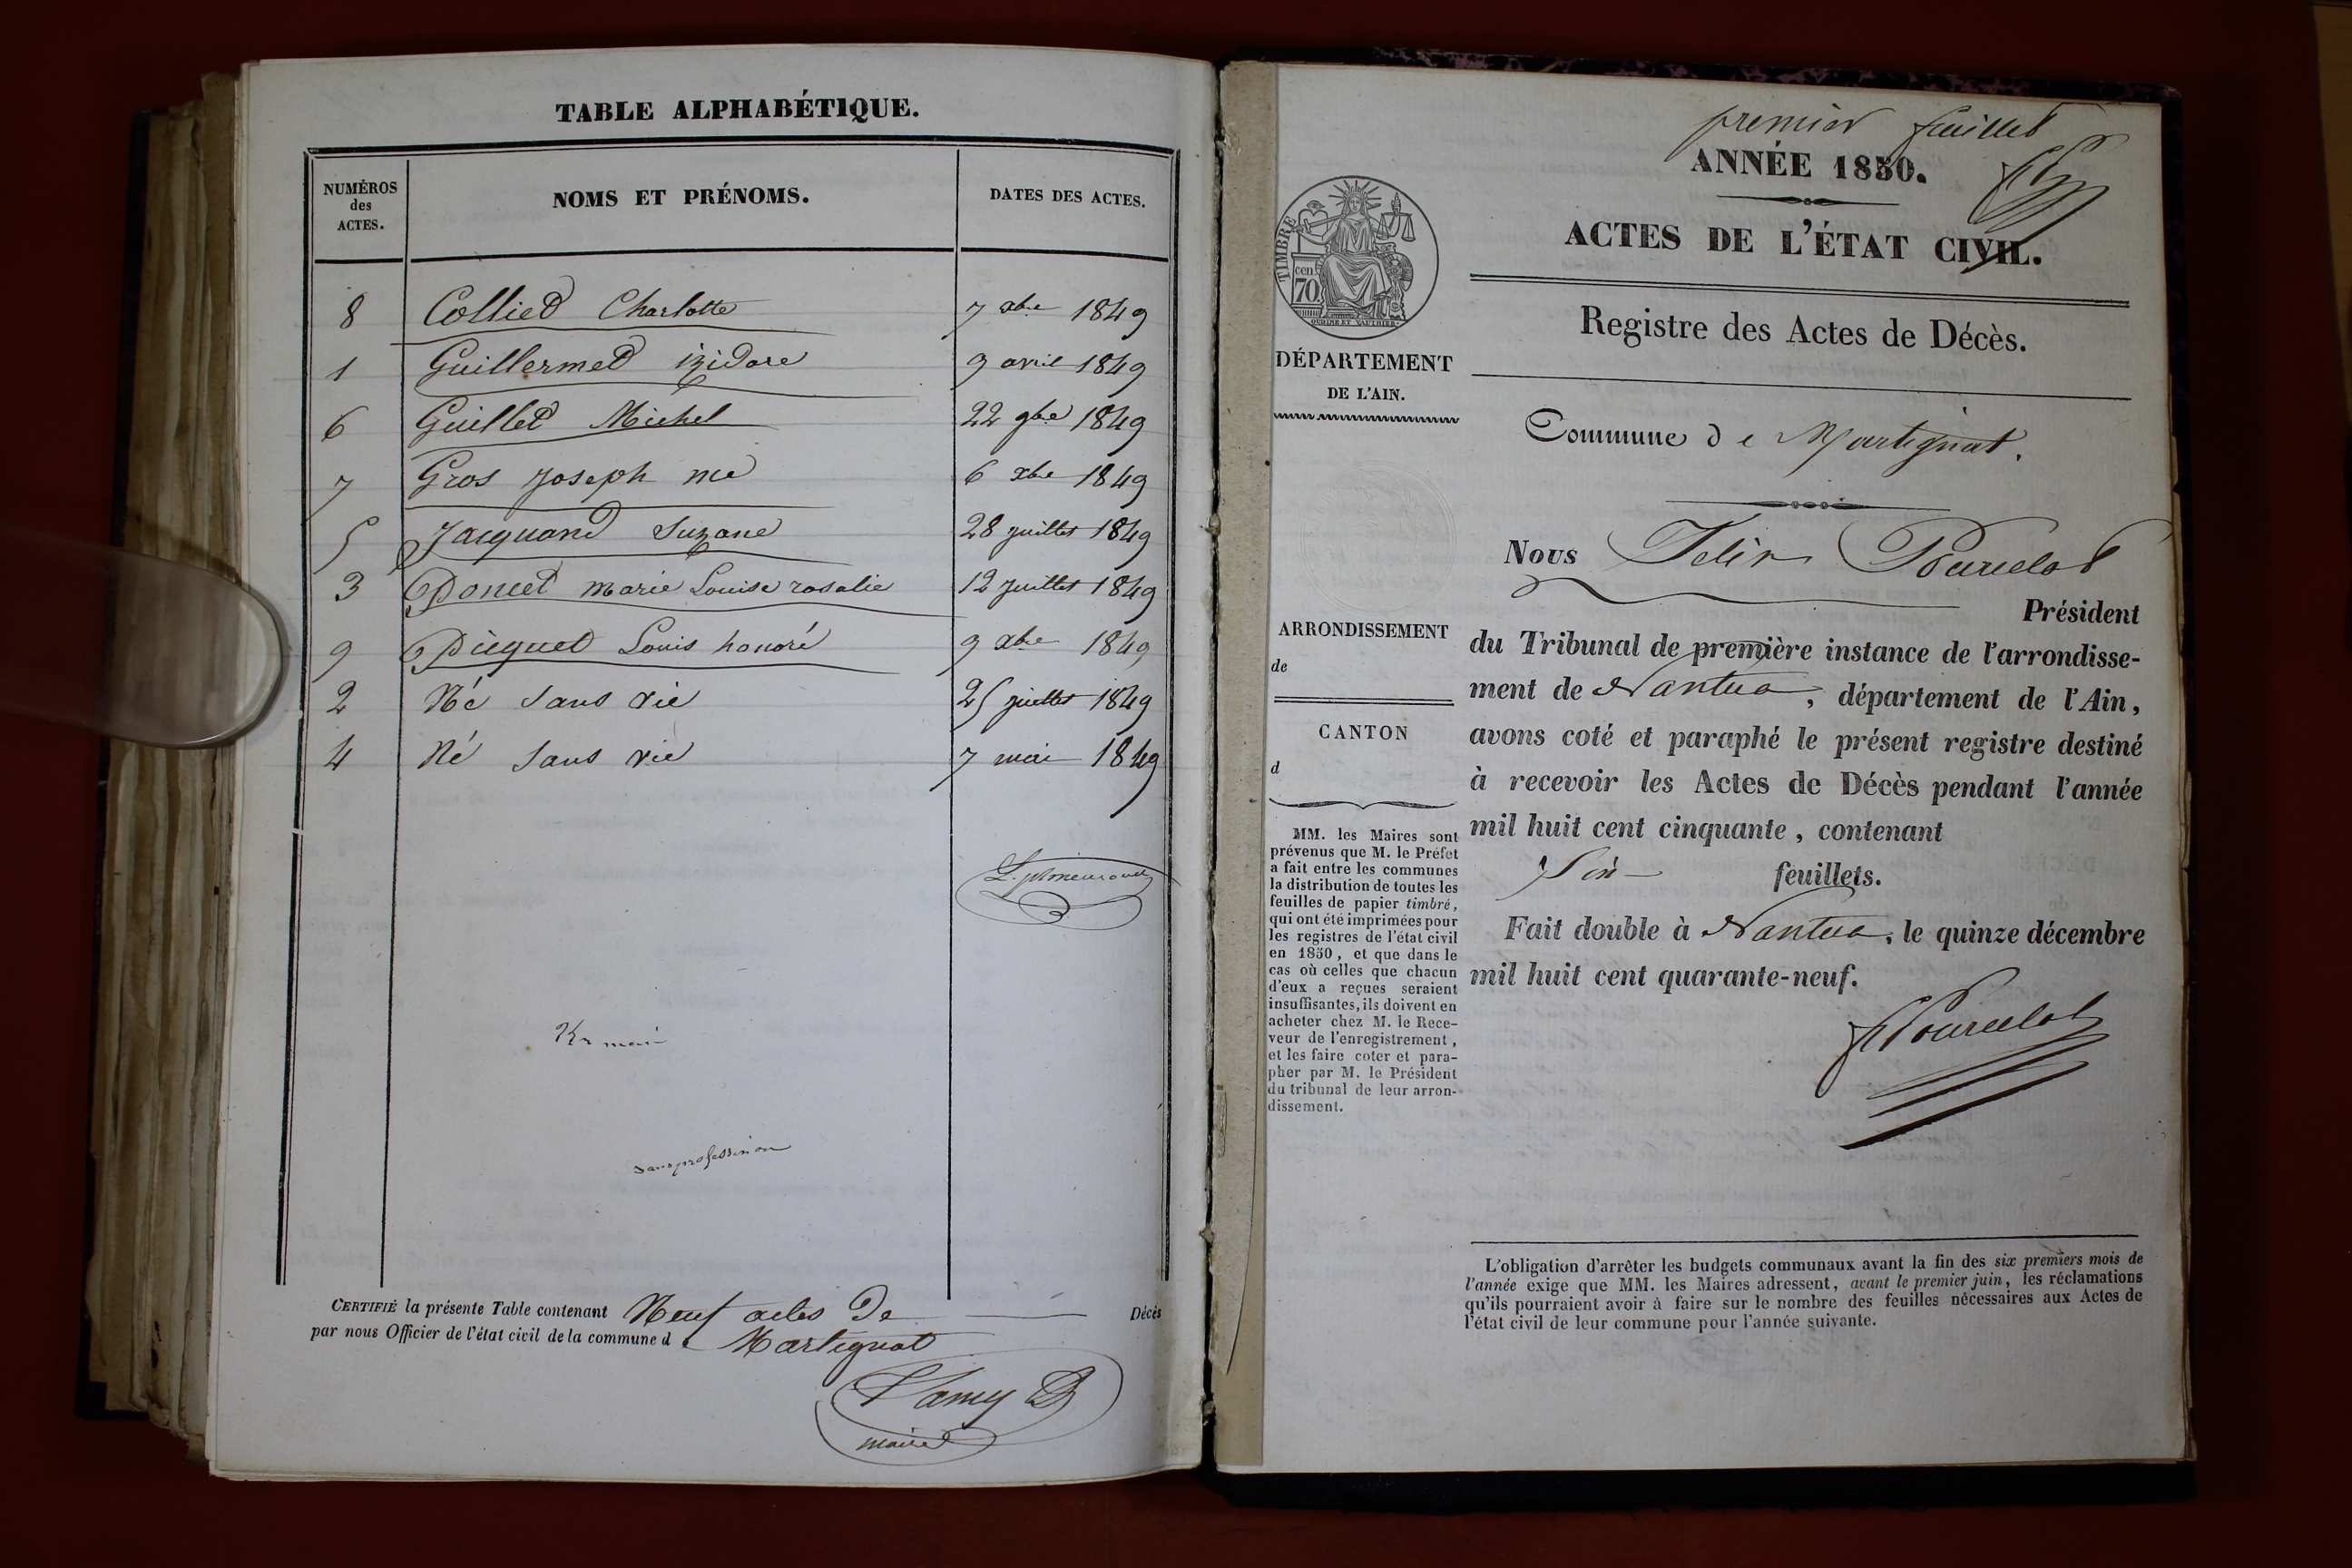 TABLE ALPHABÉTIQUE.
NUMÉROS des ACTES.
NOMS ET PRÉNOMS.
DATES DES ACTES.
8 Colliet Charlotte 7 xbre 1849
1 Guillermet izidore 9 avril 1849
6 Guillet Michel 22 9bre 1849
7 Gros Joseph me 6 xbre 1849
5 Jacquand Suzane 28 juillet 1849
3 Poncet marie Louise rosalie 12 juillet 1849
9 Picquet Louis honoré 9 xbre 1849
2 Né sans vie 25 juillet 1849
4 Né sans vie 7 mai 1849
sans profession
CERTIFIÉ la présente Table contenant Neuf actes De Décès
par nous Officier de l'état civil de la commune de Martignat
maire
premier feuillet
ANNÉE 1850.
ACTES DE L'ÉTAT CIVIL.
Registre des Actes de Décès.
TIMBRE
cen
70
OUDINÉ ET VAUTHIER.
DÉPARTEMENT
DE L'AIN.
ARRONDISSEMENT
de
CANTON
d
MM. les Maires sont
prévenus que M. le Préfet
a fait entre les communes
la distribution de toutes les
feuilles de papier timbré,
qui ont été imprimées pour
les registres de l'état civil
en 1850, et que dans le
cas où celles que chacun
d'eux a reçues seraient
insuffisantes, ils doivent en
acheter chez M. le Rece-
veur de l'enregistrement,
et les faire coter et para-
pher par M. le Président
du tribunal de leur arron-
dissement.
Commune de Martignat.
Nous Felix Pourcelot
Président
du Tribunal de première instance de l'arrondisse-
ment de Nantua, département de l'Ain,
avons coté et paraphé le présent registre destiné
à recevoir les Actes de Décès pendant l'année
mil huit cent cinquante, contenant
Six feuillets.
Fait double à Nantua, le quinze décembre
mil huit cent quarante-neuf.
F Pourcelot
L'obligation d'arrêter les budgets communaux avant la fin des six premiers mois de
l'année exige que MM. les Maires adressent, avant le premier juin, les réclamations
qu'ils pourraient avoir à faire sur le nombre des feuilles nécessaires aux Actes de
l'état civil de leur commune pour l'année suivante.